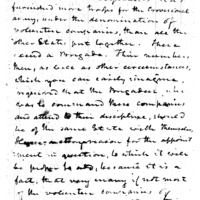 furnished more troops for the Provisional
army, under the denomination of
volunteer companies, than all the
other States put together. These
need a Brigade. Their number,
then, as well as other circumstances,
which you can easily imagine,
required that the Brigadier, who
was to command these companies
and attend to their discipline, should
be of the same State with themselves.
Another reason for the appoint
ment in question, to which it will
be proper to add, because it is a
fact, that very many if not most
of the volunteer companies of